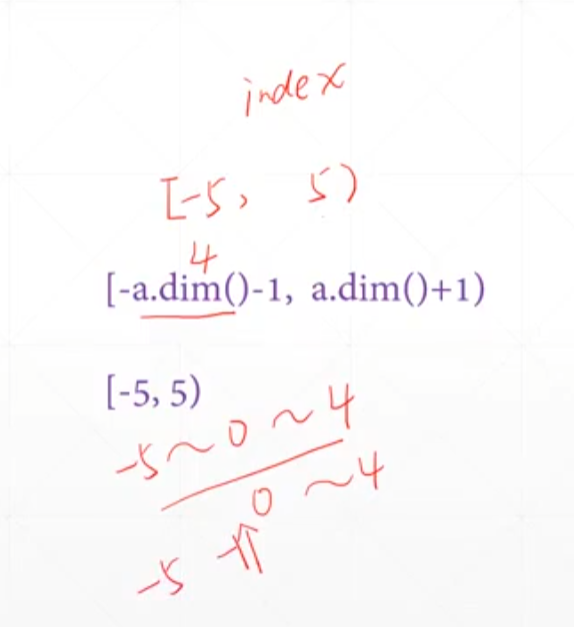 index
[-5, 5)
4
[-a.dim()-1, a.dim()+1)
[-5, 5)
-5~0~4
0~4
-5